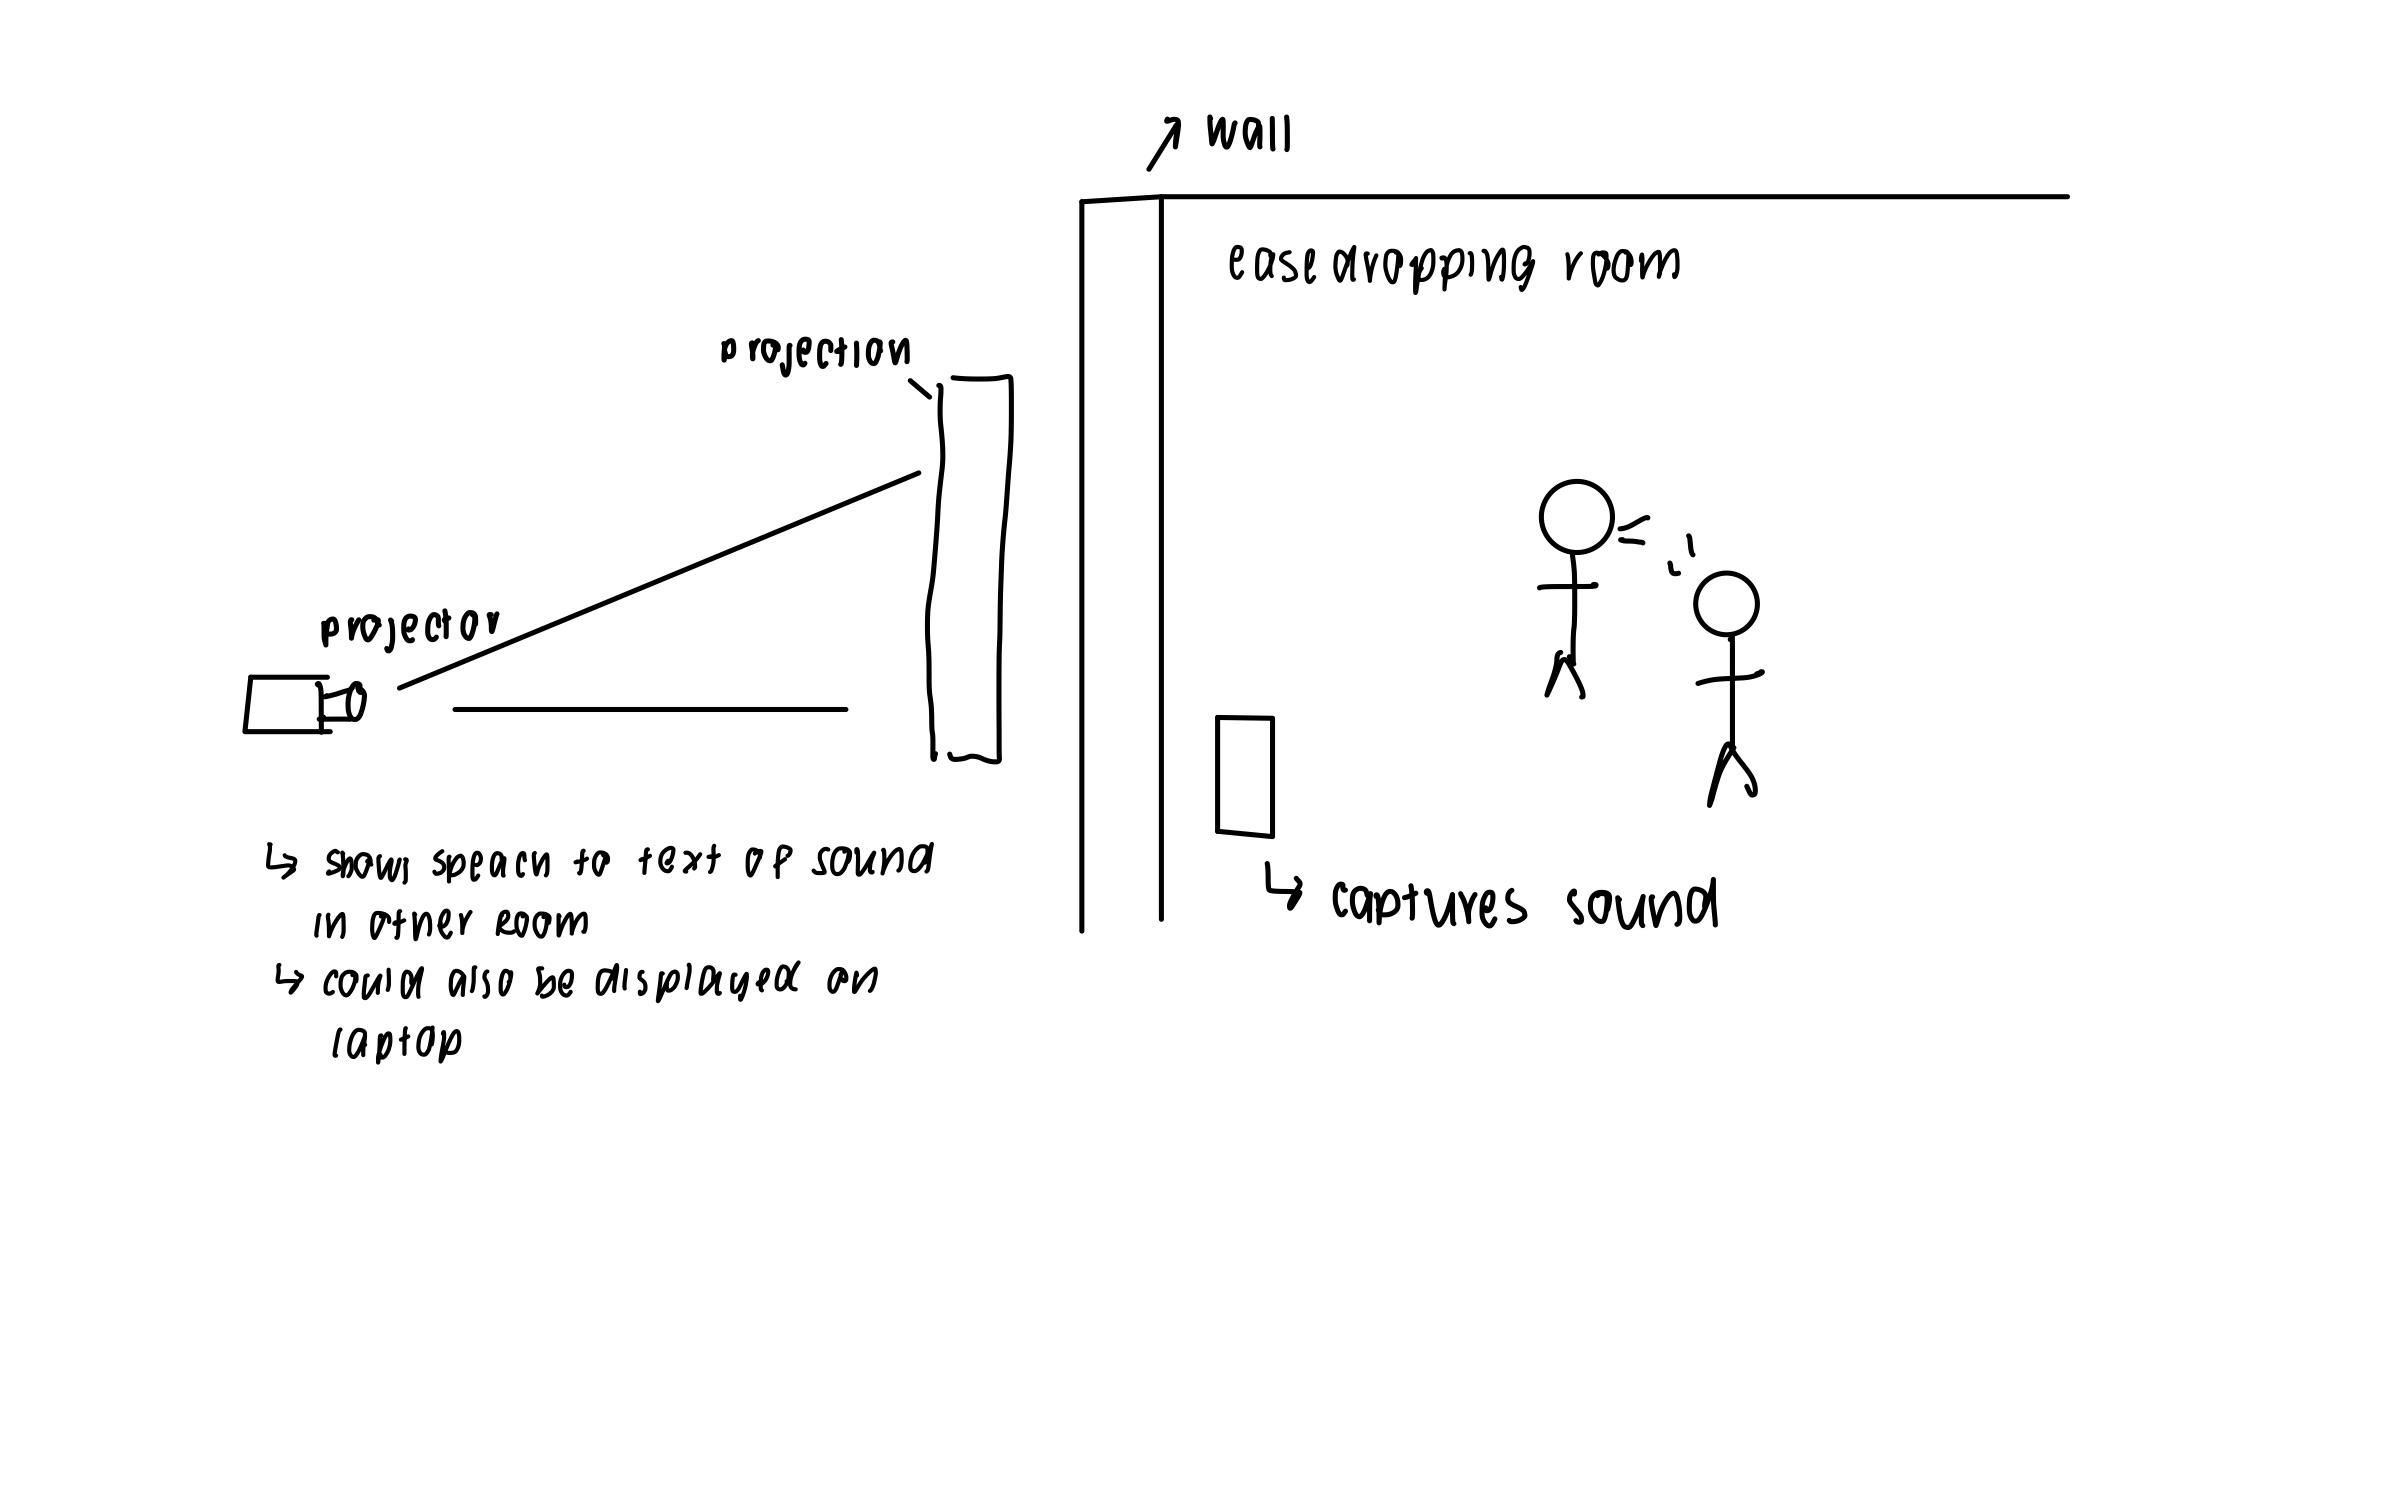 wall
easedropping room
projection
projector
↳ shows speach to text of sound
in other room
↳ could also be displayed on
laptop
↳ captures sound